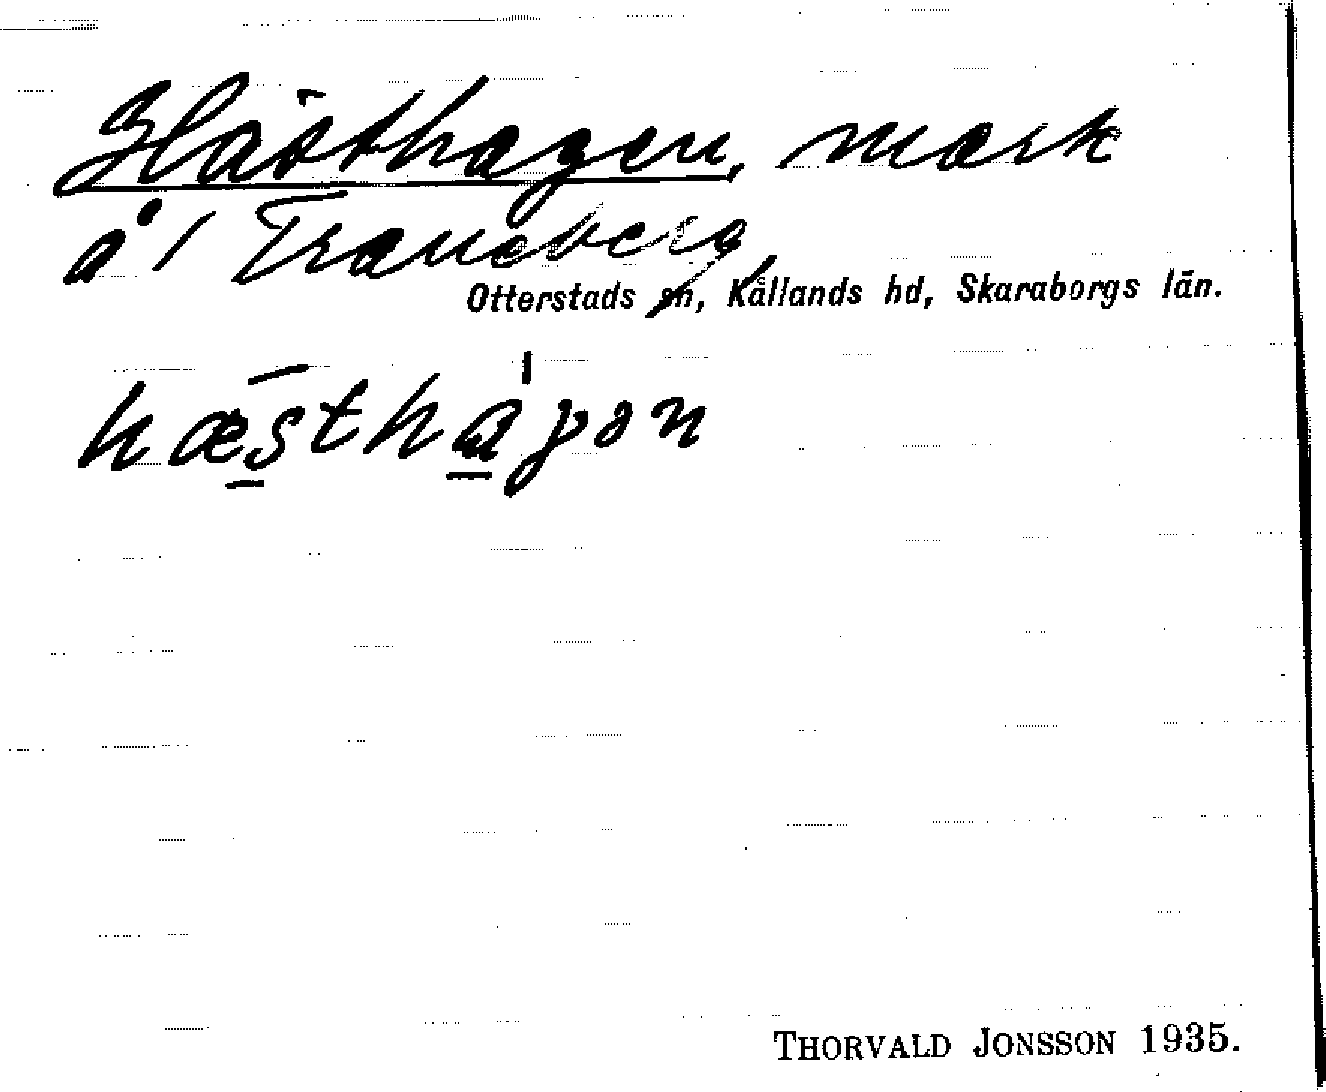 Hästhagen, mark
å / Traneberg
Otterstads sn, Kållands hd, Skaraborgs län.
hæsthaγən
THORVALD JONSSON 1935.